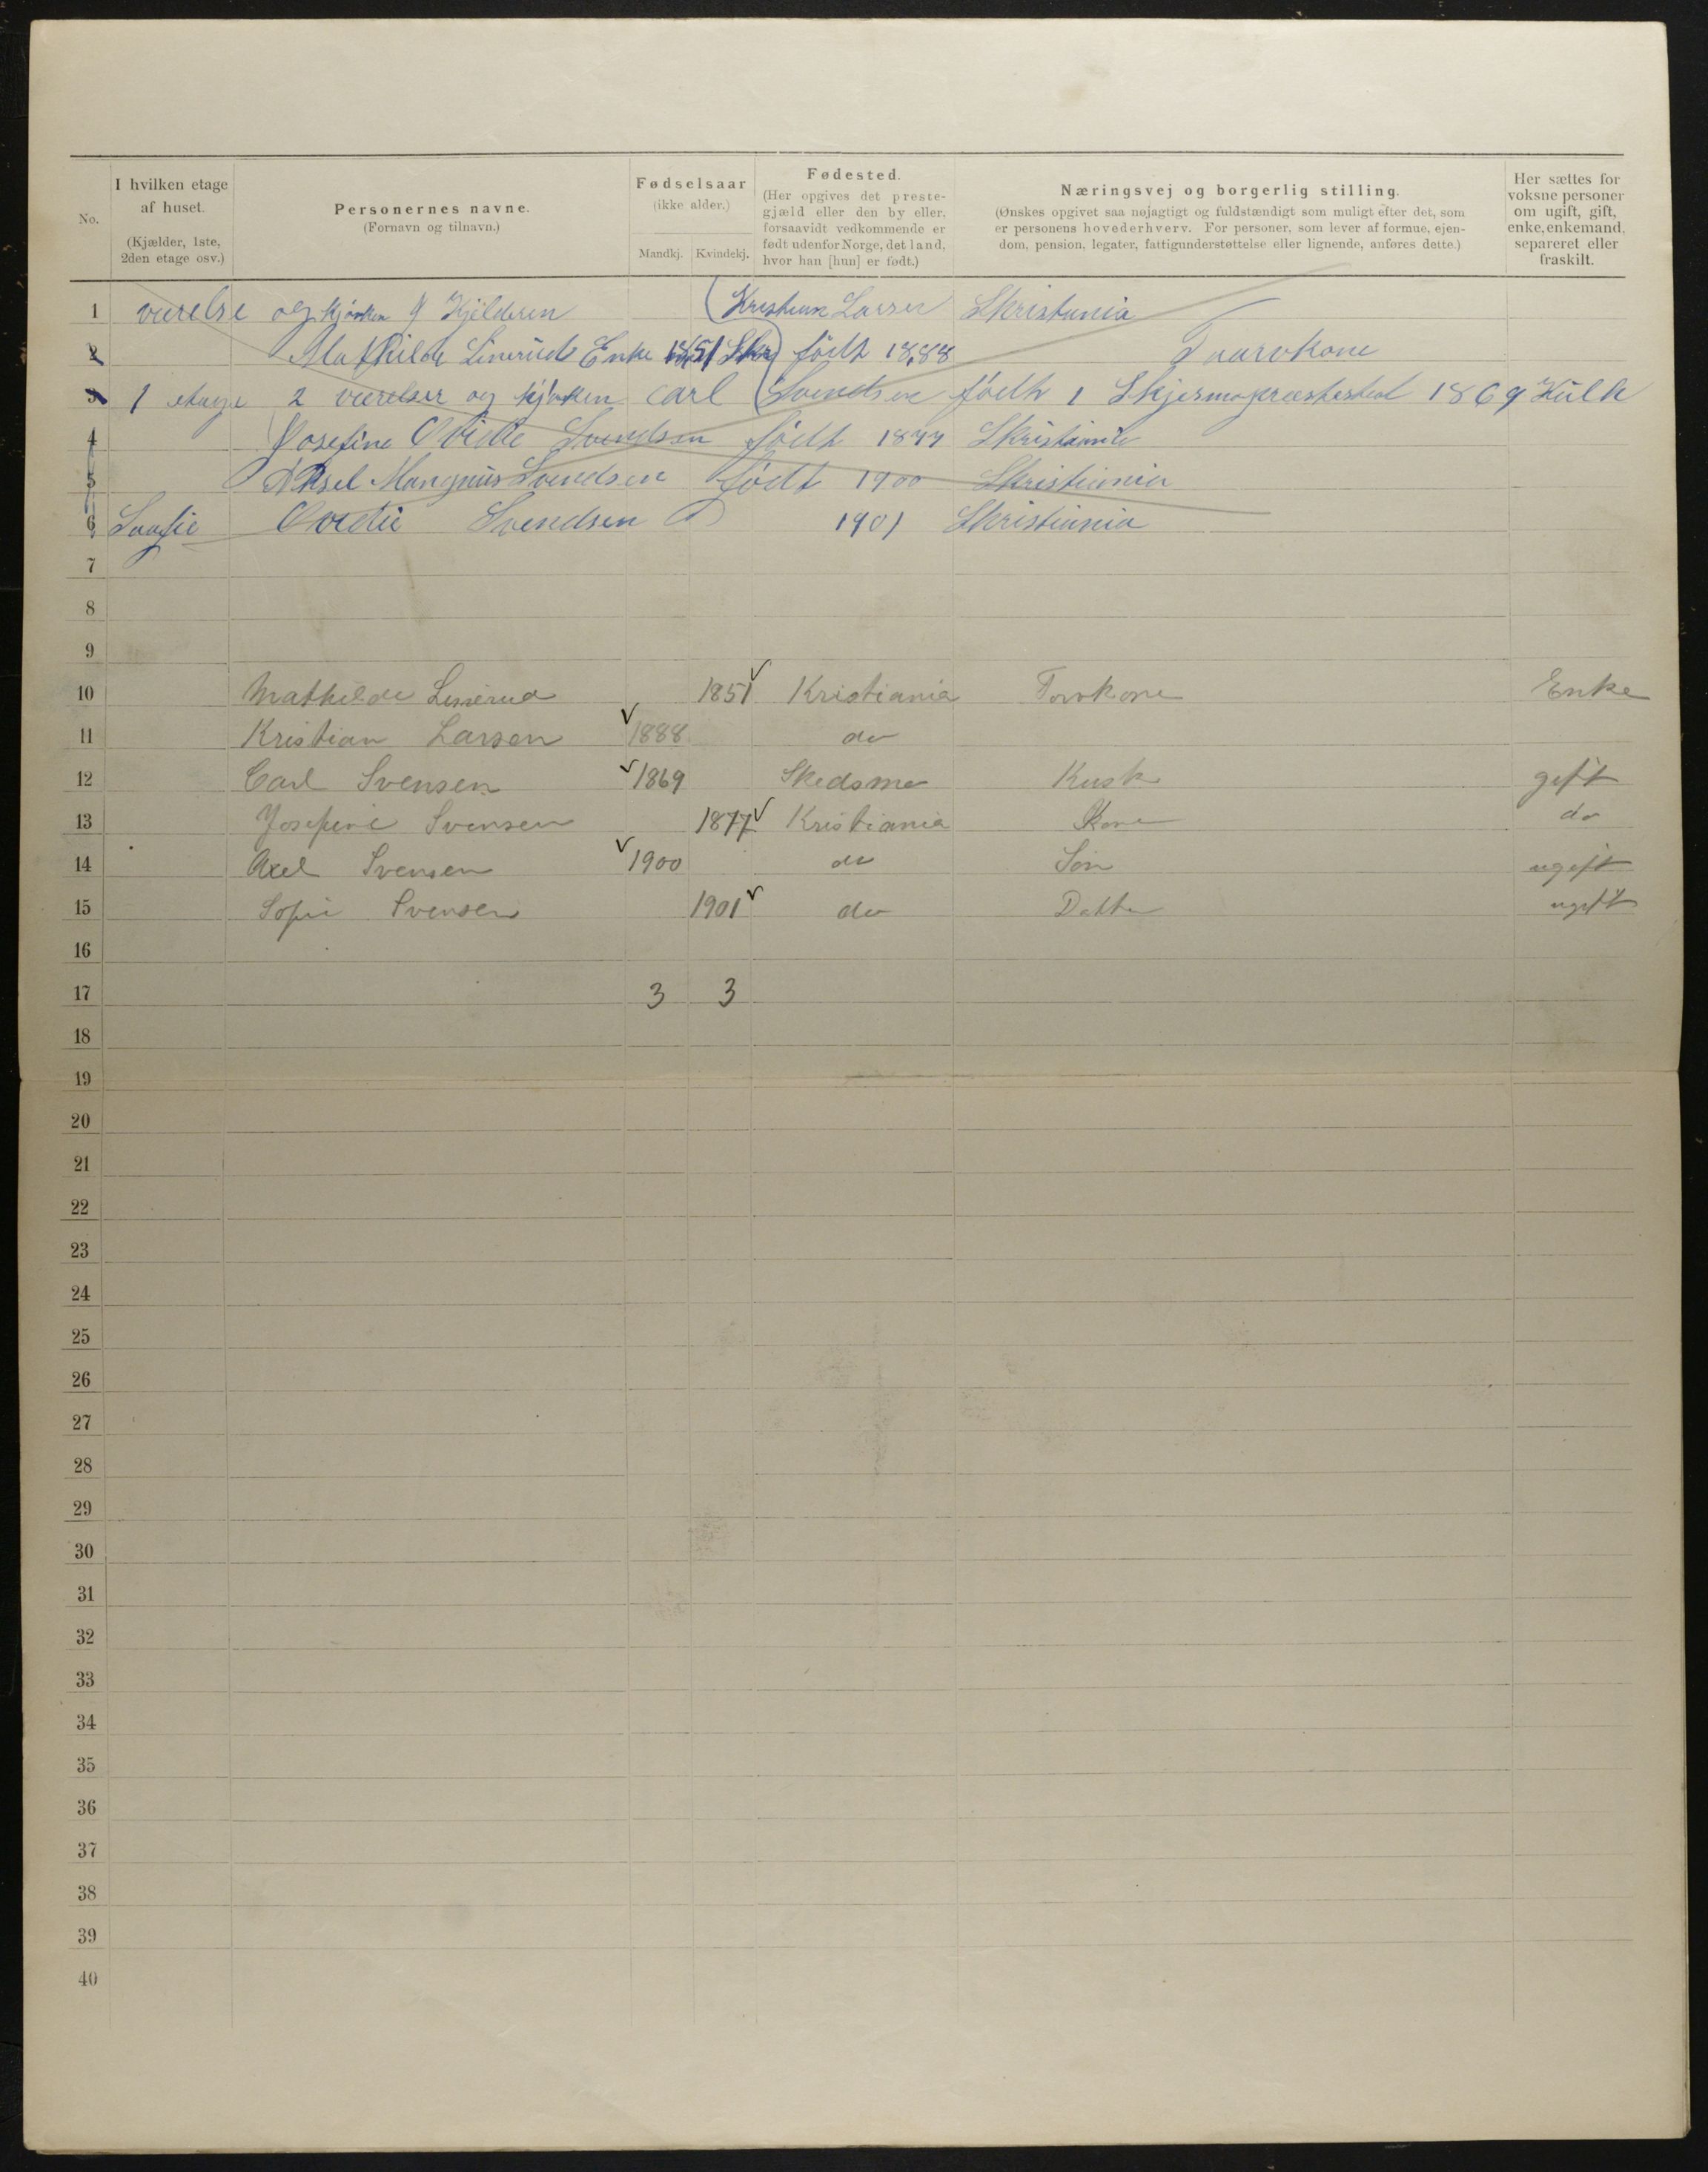 No. I hvilken etage af huset. (Kjælder, 1ste, 2den etage osv.) Personernes navne. (Fornavn og tilnavn.) Fødselsaar (ikke alder.) Mandkj. Kvindekj. Fødested. (Her opgives det prestegjæld eller den by eller, forsaavidt vedkommende er født udenfor Norge, det land, hvor han [hun] er født.) Næringsvej og borgerlig stilling. (Ønskes opgivet saa nøjagtigt og fuldstændigt som muligt efter det, som er personens hovederhverv. For personer, som lever af formue, ejendom, pension, legater, fattigunderstøttelse eller lignende, anføres dette.) Her sættes for voksne personer om ugift, gift, enke, enkemand, separeret eller fraskilt.
1 værelse og kjøken Kjelderen Larsen Skristania
2 Mathilde Linerud Enke 1851 født 1888 Taarvkone
3 1 etage 2 værelser og kjøken Carl Svendsen født 1869
4 Josefine Svendsen født 1877 Skristiania
5 Aksel Mangnus Svendsen født 1900 Skristiania
6 Svendsen 1901 Skristiania
7
8
9
10 Mathilde Linerud 1851 Kristiania Torvkone Enke
11 Kristian Larsen 1888 do
12 Carl Svensen 1869 Skedsmo Kusk gift
13 Josefine Svensen 1877 Kristiania Kone do
14 Axel Svensen 1900 do Søn ugift
15 Sofie Svensen 1901 do Datter ugift
16
17 3 3
18
19
20
21
22
23
24
25
26
27
28
29
30
31
32
33
34
35
36
37
38
39
40